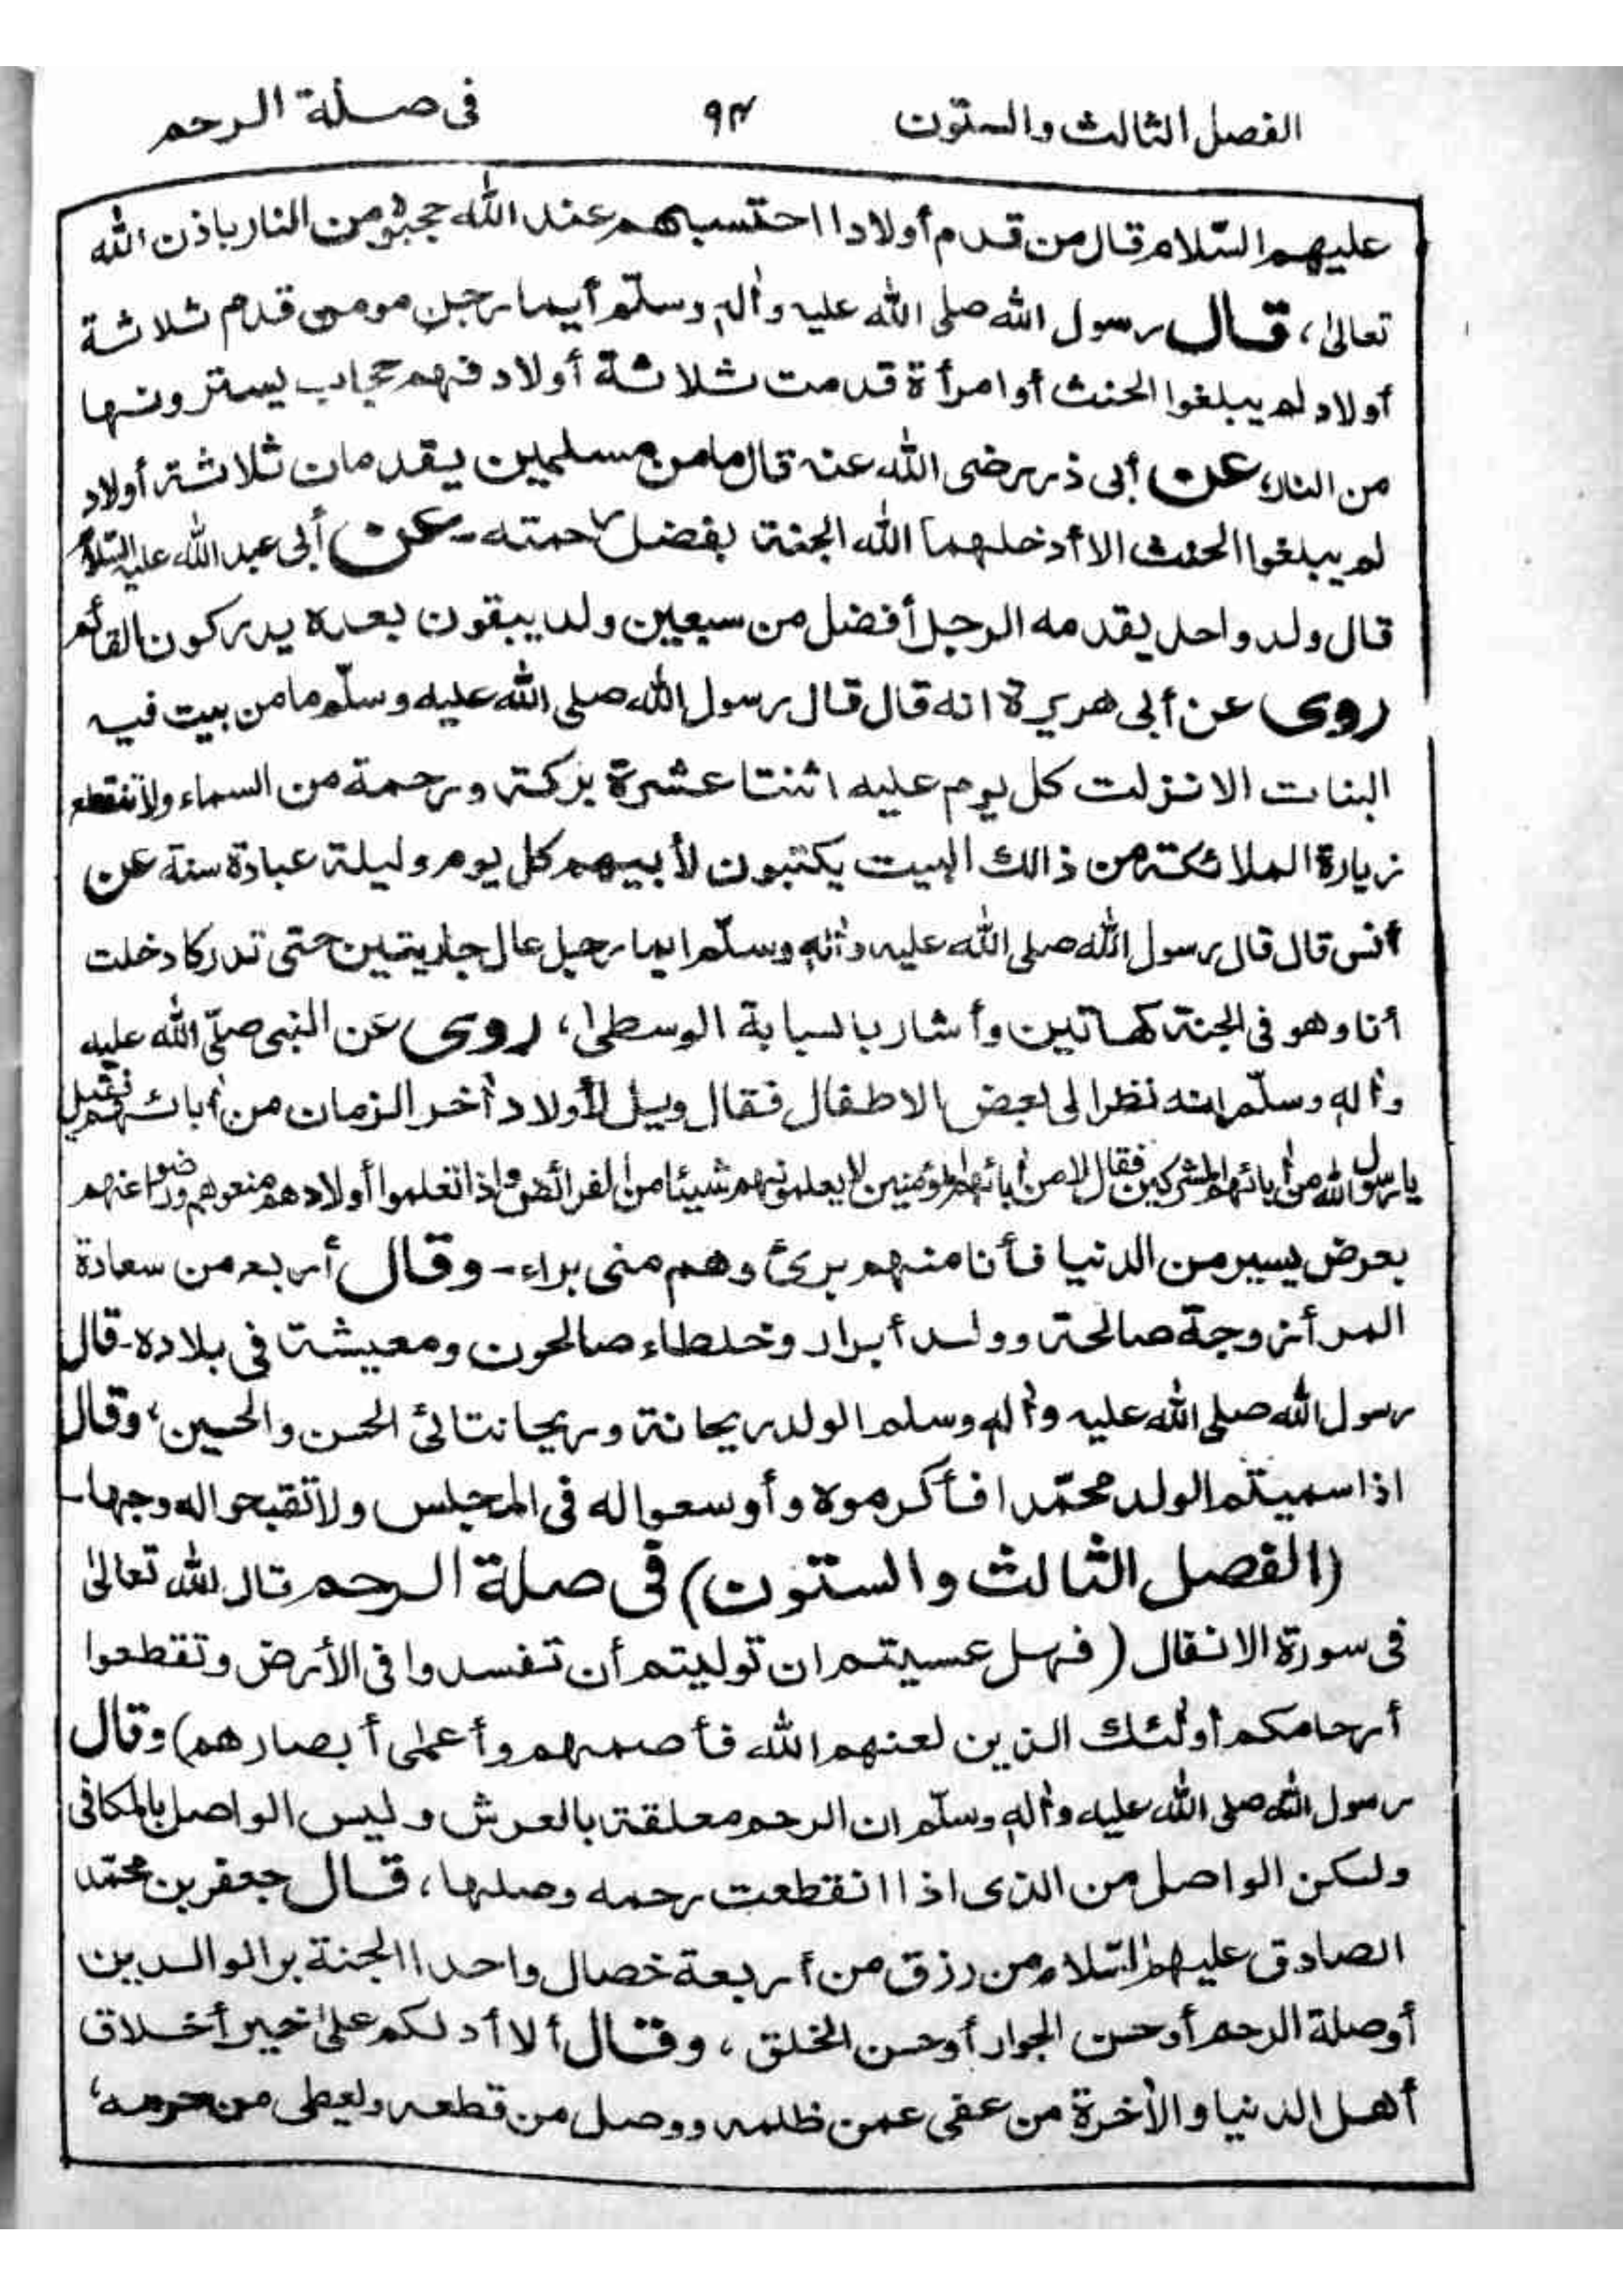 الفصل الثالث والستون ٩٣ فى صلة الرحم
عليهم السّلام قال من قدم أولادا احتسبهم عند الله حجبوه من النار باذن الله
تعالىٰ، قال رسول الله صلى الله عليه وأله وسلّم أيما رجل مومن قدم ثلاثة
أولاد لم يبلغوا الحنث أوامرأة قدمت ثلاثة أولاد فهم حجاب يسترونها
من النار، عن أبى ذر رضى الله عنه قال مامن مسلمين يقدمان ثلاثة أولاد
لم يبلغوا الحنث الا أدخلهما الله الجنة بفضل رحمته - عن أبى عبد الله عليه السّلام
قال ولد واحد يقدمه الرجل أفضل من سبعين ولد يبقون بعده يدركون القائم
روى عن أبى هريرة انه قال قال رسول الله صلى الله عليه وسلّم ما من بيت فيه
البنات الا نزلت كل يوم عليه اثنتا عشرة بركة ورحمة من السماء ولا تنقطع
زيارة الملائكة من ذالك البيت يكتبون لأبيهم كل يوم وليلة عبادة سنة عن
أنس قال قال رسول الله صلى الله عليه وأله وسلّم ايما رجل عال جاريتين حتى تدركا دخلت
أنا وهو فى الجنة كهاتين وأشار بالسبابة الوسطىٰ، روى عن النبى صلّى الله عليه
وأله وسلّم انه نظر الى بعض الاطفال فقال ويل لأولاد أخر الزمان من أبائهم فقيل
يا رسول الله من أبائهم المشركين فقال لا من أبائهم المؤمنين لا يعلمونهم شيئا من الفرائض واذا تعلموا أولادهم منعوهم ورضوا عنهم
بعرض يسير من الدنيا فأنا منهم برئ وهم منى براء - وقال أربع من سعادة
المرأ زوجة صالحة وولد أبرار وخلطاء صالحون ومعيشة فى بلاده - قال
رسول الله صلى الله عليه وأله وسلم الولد ريحانة وريحانتائى الحسن والحسين، وقال
اذا سميتم الولد محمّدا فأكرموه وأوسعوا له فى المجلس ولا تقبحوا له وجها -
(الفصل الثالث والستون) فى صلة الرحم قال الله تعالىٰ
فى سورة الانفال (فهل عسيتم ان توليتم أن تفسدوا فى الأرض وتقطعوا
أرحامكم أولئك الذين لعنهم الله فأصمهم وأعمىٰ أبصارهم) وقال
رسول الله صلى الله عليه وأله وسلّم ان الرحم معلقة بالعرش وليس الواصل بالمكافى
ولكن الواصل من الذى اذا انقطعت رحمه وصلها، قال جعفر بن محمّد
الصادق عليهم السّلام من رزق من أربعة خصال واحدا الجنة بر الوالدين
أوصلة الرحم أوحسن الجوار أوحسن الخلق، وقال ألا أدلكم علىٰ خير أخلاق
أهل الدنيا والأخرة من عفى عمن ظلمه ووصل من قطعه ولعطى من حرمه،